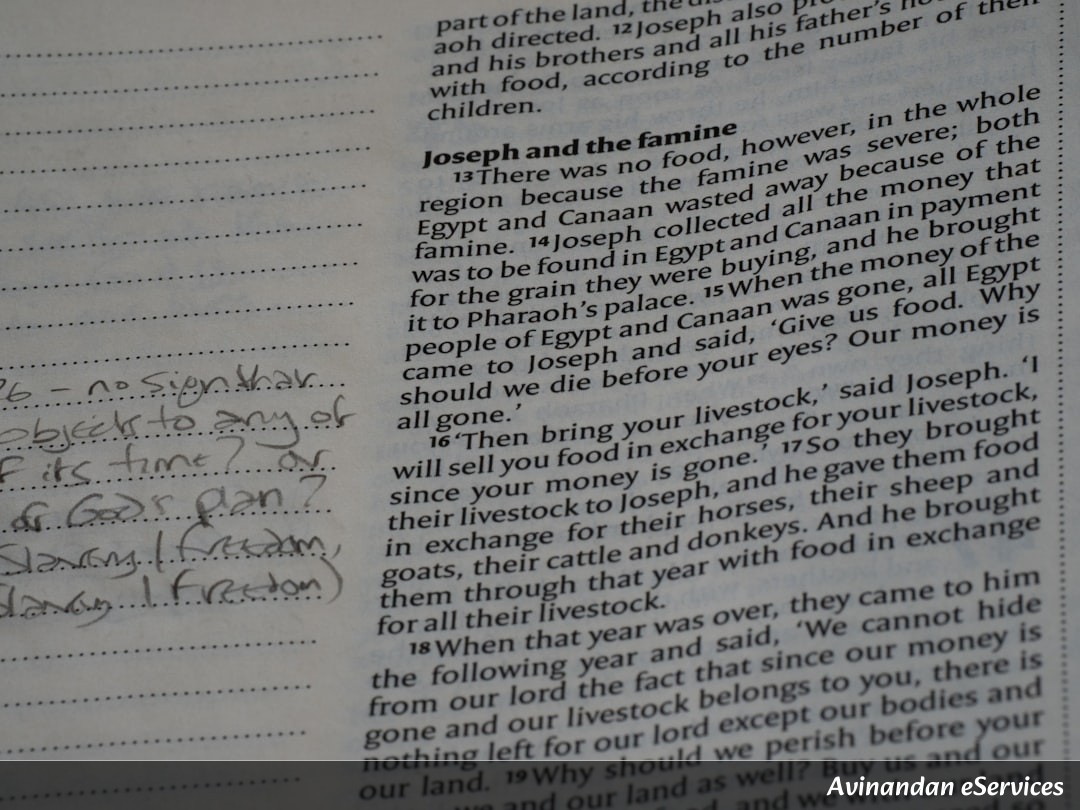 part of the land, the
aoh directed. 12Joseph also
and his brothers and all his father's
with food, according to the number of their
children.
Joseph and the famine
13There was no food, however, in the whole
region because the famine was severe; both
Egypt and Canaan wasted away because of the
famine. 14Joseph collected all the money that
was to be found in Egypt and Canaan in payment
for the grain they were buying, and he brought
it to Pharaoh's palace. 15When the money of the
people of Egypt and Canaan was gone, all Egypt
came to Joseph and said, 'Give us food. Why
should we die before your eyes? Our money is
all gone.'
16'Then bring your livestock,' said Joseph. 'I
will sell you food in exchange for your livestock,
since your money is gone.' 17So they brought
their livestock to Joseph, and he gave them food
in exchange for their horses, their sheep and
goats, their cattle and donkeys. And he brought
them through that year with food in exchange
for all their livestock.
18When that year was over, they came to him
the following year and said, 'We cannot hide
from our lord the fact that since our money is
gone and our livestock belongs to you, there is
nothing left for our lord except our bodies and
our land. 19Why should we perish before your
we and our land as well? Buy us and our
and we
26 - no sign that
objects to any of
its time? or
of God's plan?
Slavery / freedom,
slavery / freedom)
Avinandan eServices